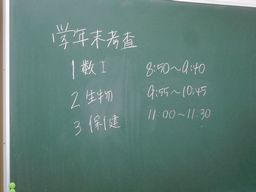 学年末考査
1 数I 8:50〜9:40
2 生物 9:55〜10.45
3 保健 11:00〜11.30